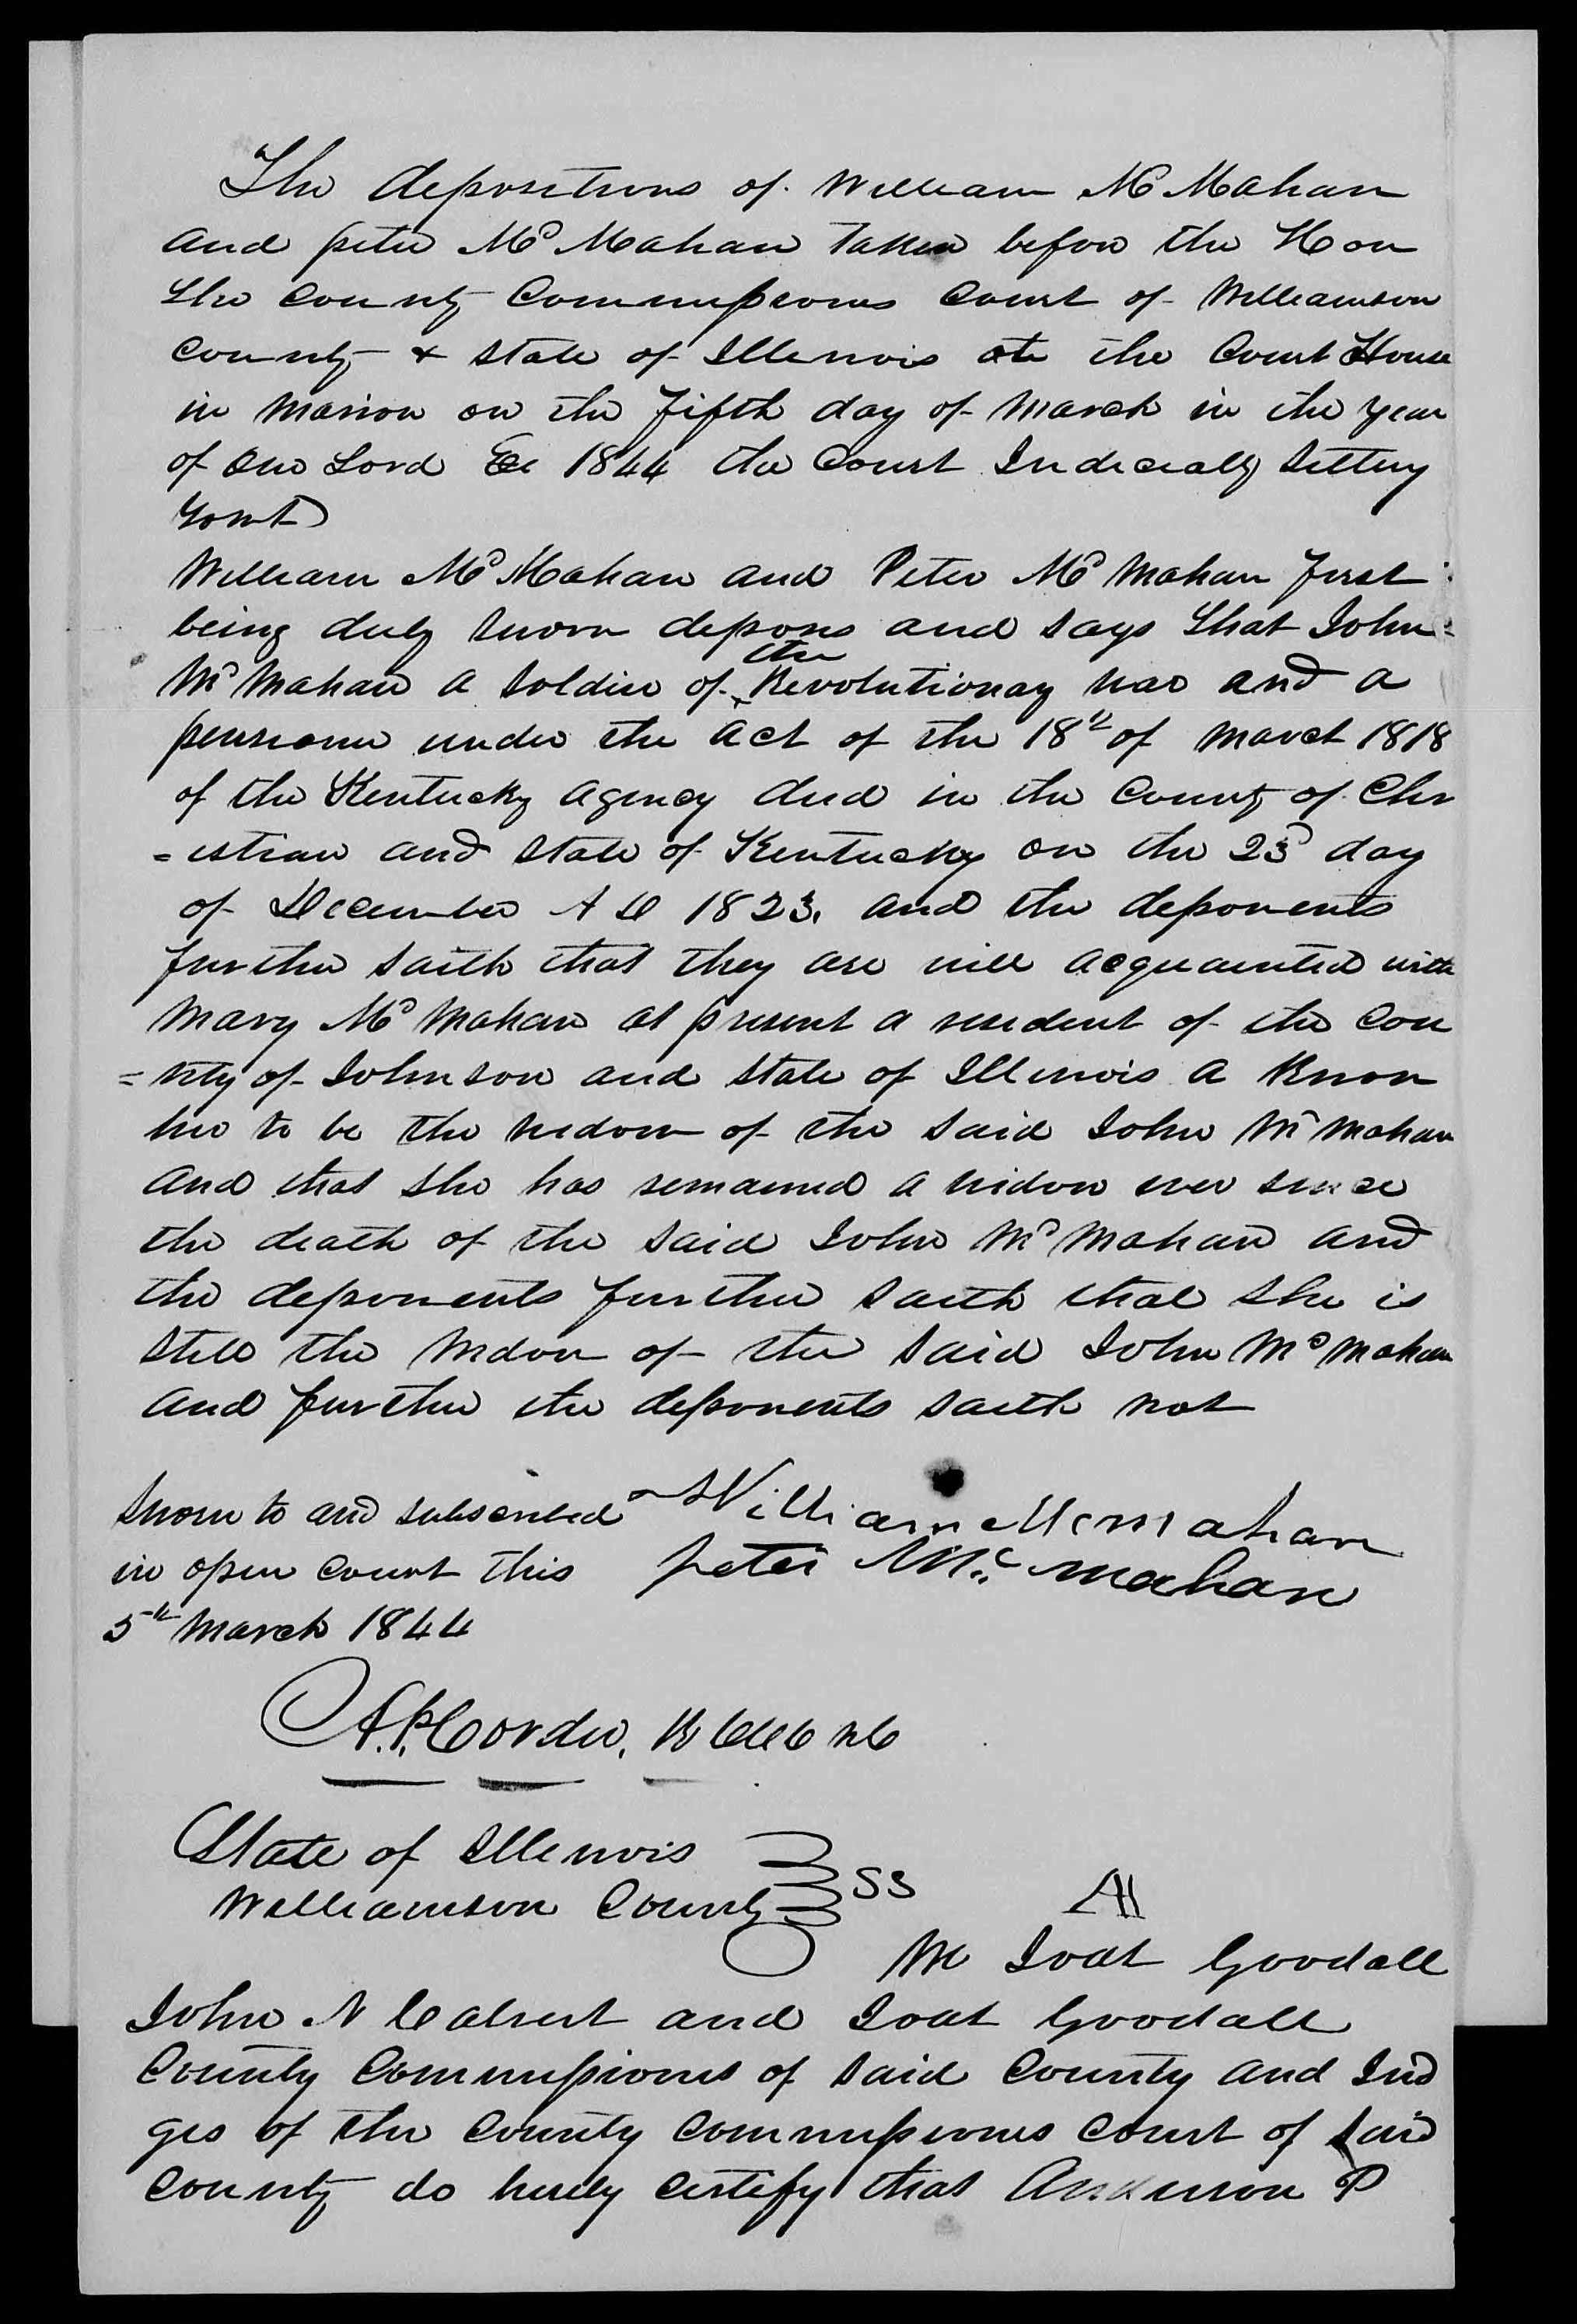 The depositions of William Mc Mahan
and peter Mc Mahan Taken before the Hon
the county Commissioners Court of Williamson
county & state of Illinois at the Court House
in Marion on the fifth day of March in the year
of our Lord &c 1844 the Court Judicially Sitting
William Mc Mahan and Peter Mc Mahan first
being duly sworn deposes and says that John
Mc Mahan a Soldier of the Revolutionay war and a
pensioner under the act of the 18th of March 1818
of the Kentucky agency died in the County of Chr
=istian and State of Kentucky on the 23d day
of December A D 1823. and the deponents
further saith that they are well acquainted with
Mary Mc Mahan at present a resident of the Cou
=nty of Johnson and State of Illinois a know
her to be the widow of the said John Mc Mahan
and that she has remained a widow ever since
the death of the said John Mc Mahan and
the deponents further saith that she is
still the widow of the said John Mc Mahan
and further the deponents saith not
Sworn to and subscribed William Mcmahan
in open court this peter Mc. mahan
5th March 1844
A.P. Corder.
State of Illinois
Williamson County SS
We Joab Goodall
John N Calvert and Joab Goodall
County Commissioners of said County and Jud
ges of the County Commissioners Court of said
county do hereby certify that Anderson P